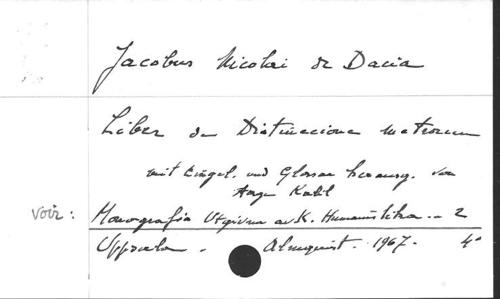 Jacobus Nicolai de Dacia
Liber de Distinccione metrorum
mit Eingel. und Glossar herausg. von
Aage Kabll
Voir : Monografier Utgivna av K. Humanistika .. 2
Uppsala - Almquist. 1967. 4°